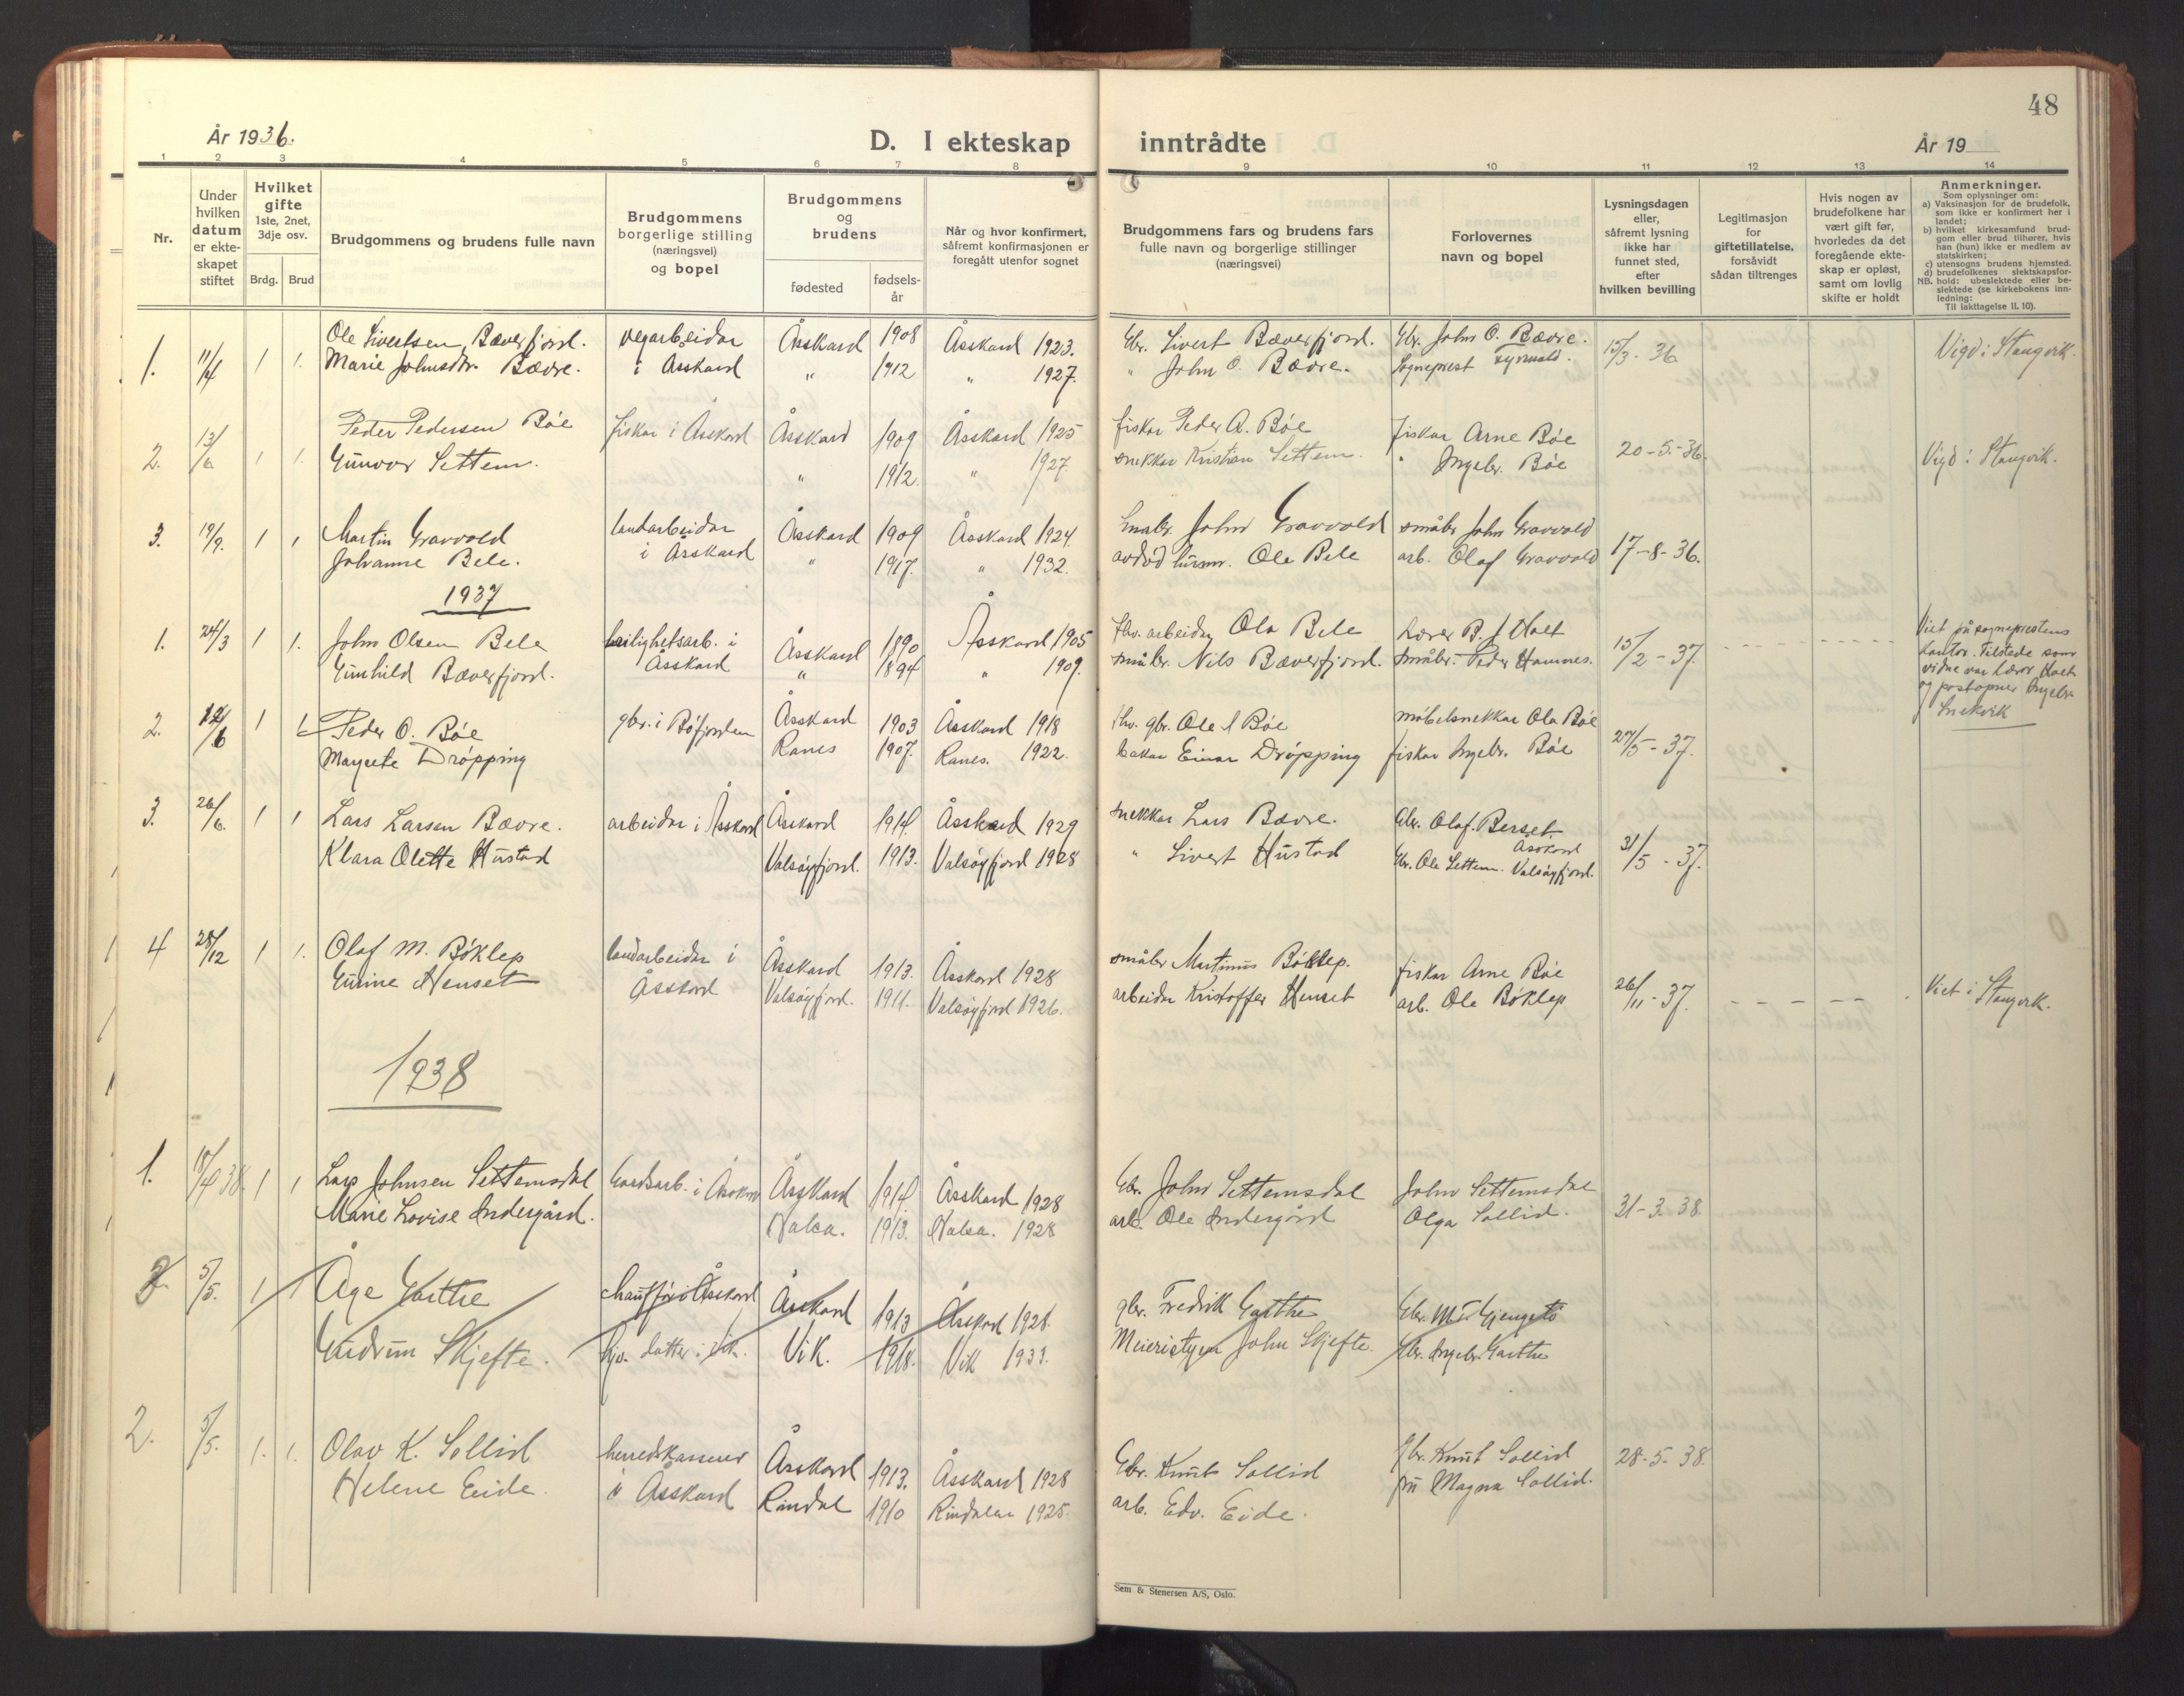 48
År 1936.
D. I ekteskap inntrådte
År 19
1 2 3 4 5 6 7 8 9 10 11 12 13 14
Nr.
Under hvilken datum er ekteskapet stiftet
Hvilket gifte 1ste, 2net, 3dje osv.
Brdg. Brud
Brudgommens og brudens fulle navn
Brudgommens borgerlige stilling (næringsvei) og bopel
Brudgommens og brudens
fødested
fødselsår
Når og hvor konfirmert, såfremt konfirmasjonen er foregått utenfor sognet
Brudgommens fars og brudens fars fulle navn og borgerlige stillinger (næringsvei)
Forlovernes navn og bopel
Lysningsdagen eller, såfremt lysning ikke har funnet sted, efter hvilken bevilling
Legitimasjon for giftetillatelse, forsåvidt sådan tiltrenges
Hvis nogen av brudefolkene har vært gift før, hvorledes da det foregående ekteskap er opløst, samt om lovlig skifte er holdt
Anmerkninger.
Som oplysninger om:
a) Vaksinasjon for de brudefolk, som ikke er konfirmert her i landet;
b) hvilket kirkesamfund brudgom eller brud tilhører, hvis han (hun) ikke er medlem av statskirken;
c) utensogns brudens hjemsted.
d) brudefolkenes slektskapsforhold: ubeslektede eller beslektede (se kirkebokens innledning:
NB.
Til iakttagelse II. 10).
1. 11/4 1 1. Ole Sivertsen Bæverfjord. vegarbeidar Åsskard 1908 Åsskard 1923. Gbr. Sivert Bæverfjord. Gbr. John O. Bævre. 15/3 - 36 Vigd i Stangvik.
Marie Johnsdtr. Bævre. i Åsskard " 1912 " 1927. " John O. Bævre. Sogneprest
2. 13/6 1 1. Peder Pedersen Bøe fiskar i Åsskard Åsskard 1909 Åsskard 1925 fiskar Peder A. Bøe fiskar Arne Bøe 20-5-36 Vigd i Stangvik.
Gunvor Settem. " 1912. " 1927. snekkar Kristian Settem. " Ingebr. Bøe
3. 19/9. 1 1 Martin Gravvold landarbeidar Åsskard 1909 Åsskard 1924. Småbr. John Gravvold småbr John Gravvold 17-8-36.
Johanne Bele. i Åsskard " 1917. " 1932. avdød husm. Ole Bele arb. Olaf Gravvold
1937
1. 24/3 1 1. John Olsen Bele leilighetsarb. i Åsskard 1890 Åsskard 1905 fhv. arbeidar Ola Bele Lærer B. J Holt 15/2 - 37.
Gunhild Bæverfjord. Åsskard " 1894 " 1909. småbr. Nils Bæverfjord. småbr. Peder Hamnes.
Viet på sogneprestens kontor. Tilstede som vidne var lærer Holt og postopner Ingebr. Snekvik
2. 12/6 1 1 Peder O. Bøe gbr. i Bøfjorden Åsskard 1903 Åsskard 1918 fhv. gbr. Ole Bøe møbelsnekkar Ola Bøe 27/5 - 37.
Margrete Drøpping Ranes 1907. Ranes. 1922. bakar Einar Drøpping fiskar Ingebr. Bøe
3. 26/6. 1 1 Lars Larsen Bævre. arbeidar i Åsskard Åsskard 1914. Åsskard 1929 snekkar Lars Bævre. Gbr. Olaf Berset. Åsskard 31/5 - 37.
Klara Olette Hustad Valsøyfjord. 1913. Valsøyfjord 1928 " Sivert Hustad Gbr. Ole Settem. Valsøyfjord.
4 28/12 1 1. Olaf M. Bøklep landarbeidar i Åsskard 1913. Åsskard 1928 småbr Martinus Bøklep. fiskar Arne Bøe 26/11 - 37. - - - - - Viet i Stangvik.
Gurine Henset Åsskard Valsøyfjord. 1911. Valsøyfjord 1926. arbeidar Kristoffer Henset arb. Ole Bøklep
1938
1. 18/4 38. 1 1 Lars Johnsen Settemsdal Gardsarb. i Åsskard Åsskard 1914. Åsskard 1928 Gbr. John Settemsdal John Settemsdal 31-3.38.
Marie Lovise Indergård. Halsa. 1913. Halsa. 1928 arb. Ole Indergård Olga Sollid.
2. 5/5. 1 1 Åge Garthe chauffør i Åsskard Åsskard 1913 Åsskard 1928. gbr. Fredrik Garthe Gbr. M.
Gudrun Skjefte. hjv. datter i Vik. Vik. 1918. Vik 1933. Meieristyrar John Skjefte. Gbr. Ingebr. Garthe
2. 5/5. 1. 1. Olav K. Sollid herredskasserer Åsskard 1913. Åsskard 1928 Gbr. Knut Sollid Gbr. Knut Sollid 28-5-38.
Helene Eide. i Åsskard Rindal 1910 Rindalen 1925. arb. Edv. Eide. fru Magna Sollid.
Sem & Stenersen A/S, Oslo.